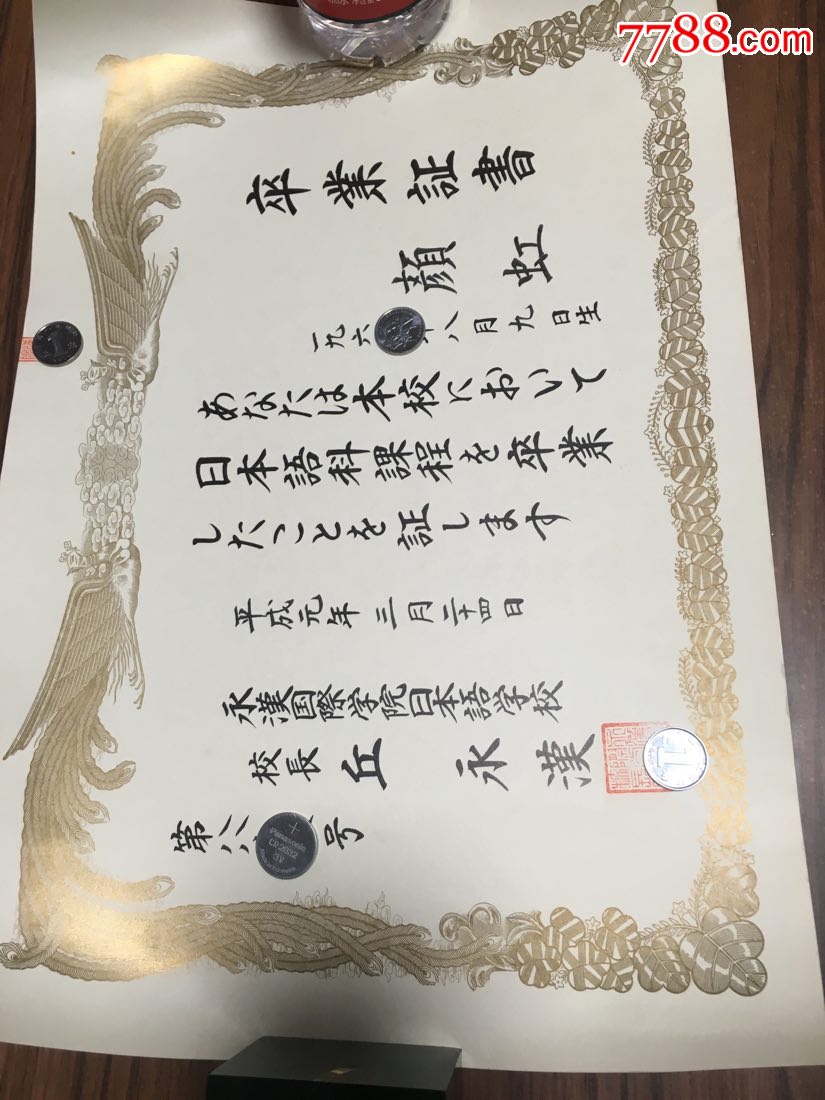 7788.com
卒業証書
顔虹
一九六 年八月九日生
あなたは本校において
日本語科課程を卒業
したことを証します
平成元年三月二十四日
永漢国際学院日本語学校
校長 丘永漢
第八八 号
Panasonic
CR2032
3V